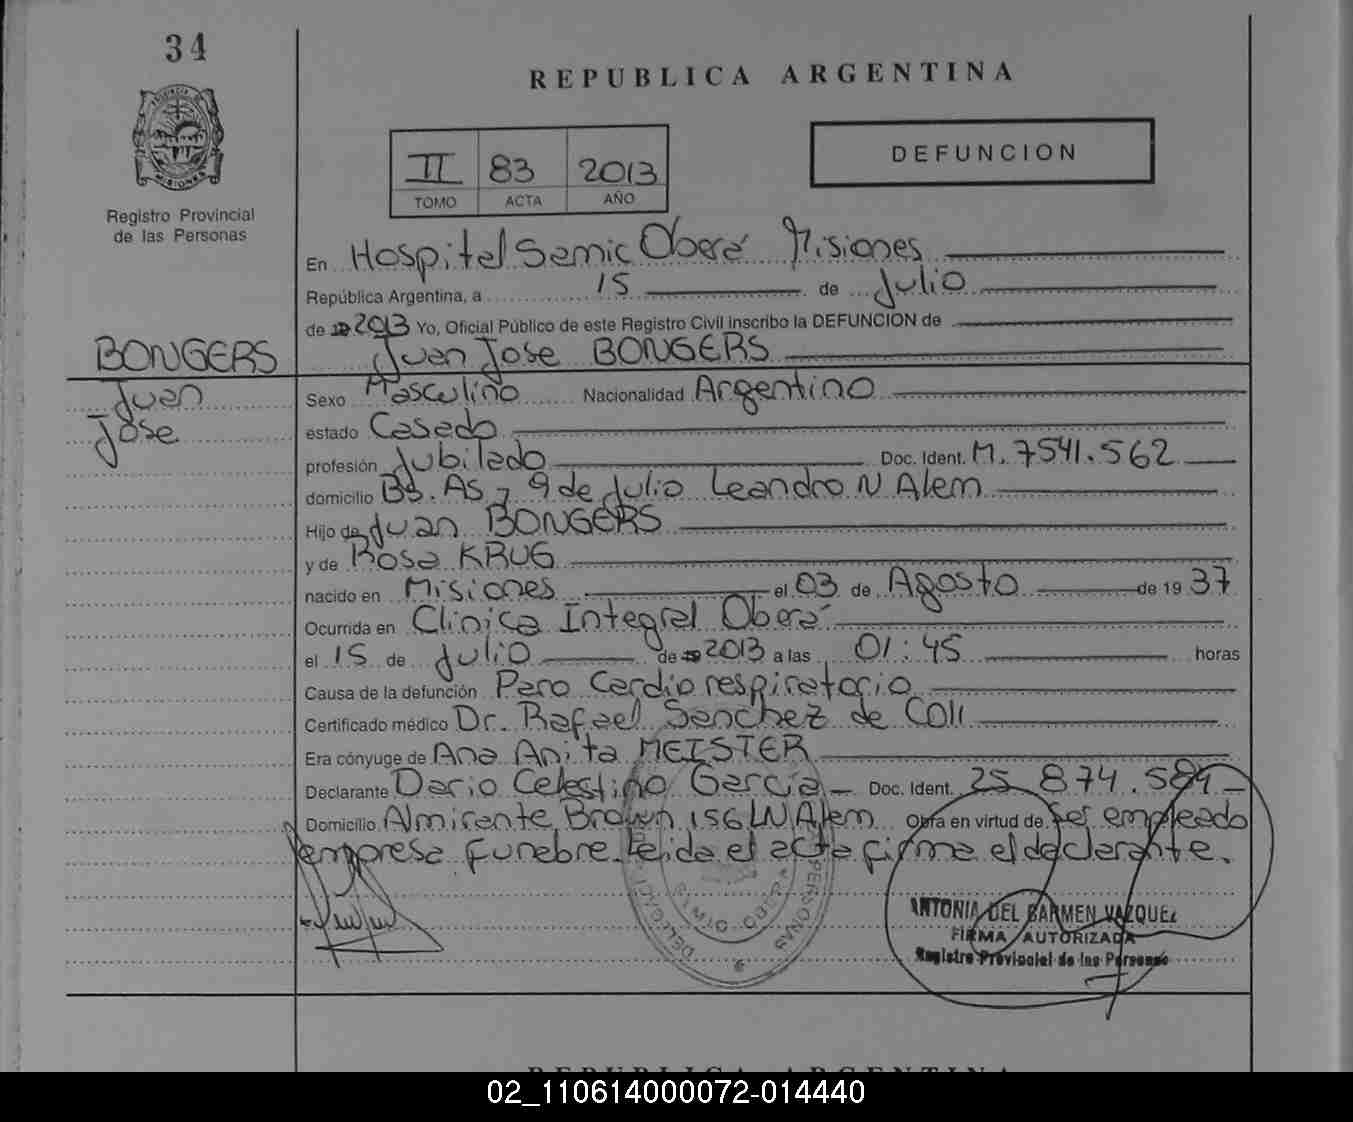 34
REPUBLICA ARGENTINA
PROVINCIA DE
MISIONES
II 83 2013
TOMO ACTA AÑO
DEFUNCION
Registro Provincial
de las Personas
En Hospital Samic Oberá Misiones
República Argentina, a 15 de Julio
de 2013 Yo, Oficial Público de este Registro Civil inscribo la DEFUNCION de
BONGERS Juan Jose BONGERS
Juan
Jose
Sexo Masculino Nacionalidad Argentino
estado Casado
profesión Jubilado Doc. Ident. M. 7541.562
domicilio Bs. As y 9 de Julio Leandro N Alem
Hijo de Juan BONGERS
y de Rosa KRUG
nacido en Misiones el 03 de Agosto de 1937
Ocurrida en Clinica Integral Oberá
el 15 de Julio de 2013 a las 01:45 horas
Causa de la defunción Paro Cardio respiratorio
Certificado médico Dr. Rafael Sanchez de Coll
Era cónyuge de Ana Anita MEISTER
Declarante Dario Celestino García Doc. Ident. 25 874.584
Domicilio Almirante Brown 156 LN Alem Obra en virtud de Ser empleado
empresa funebre. Leida el acta firma el declarante.
SAMIC OBERA
PERSONAS
ANTONIA DEL CARMEN VAZQUEZ
FIRMA AUTORIZADA
Registro Provincial de las Personas
REPUBLICA ARGENTINA
02_110614000072-014440